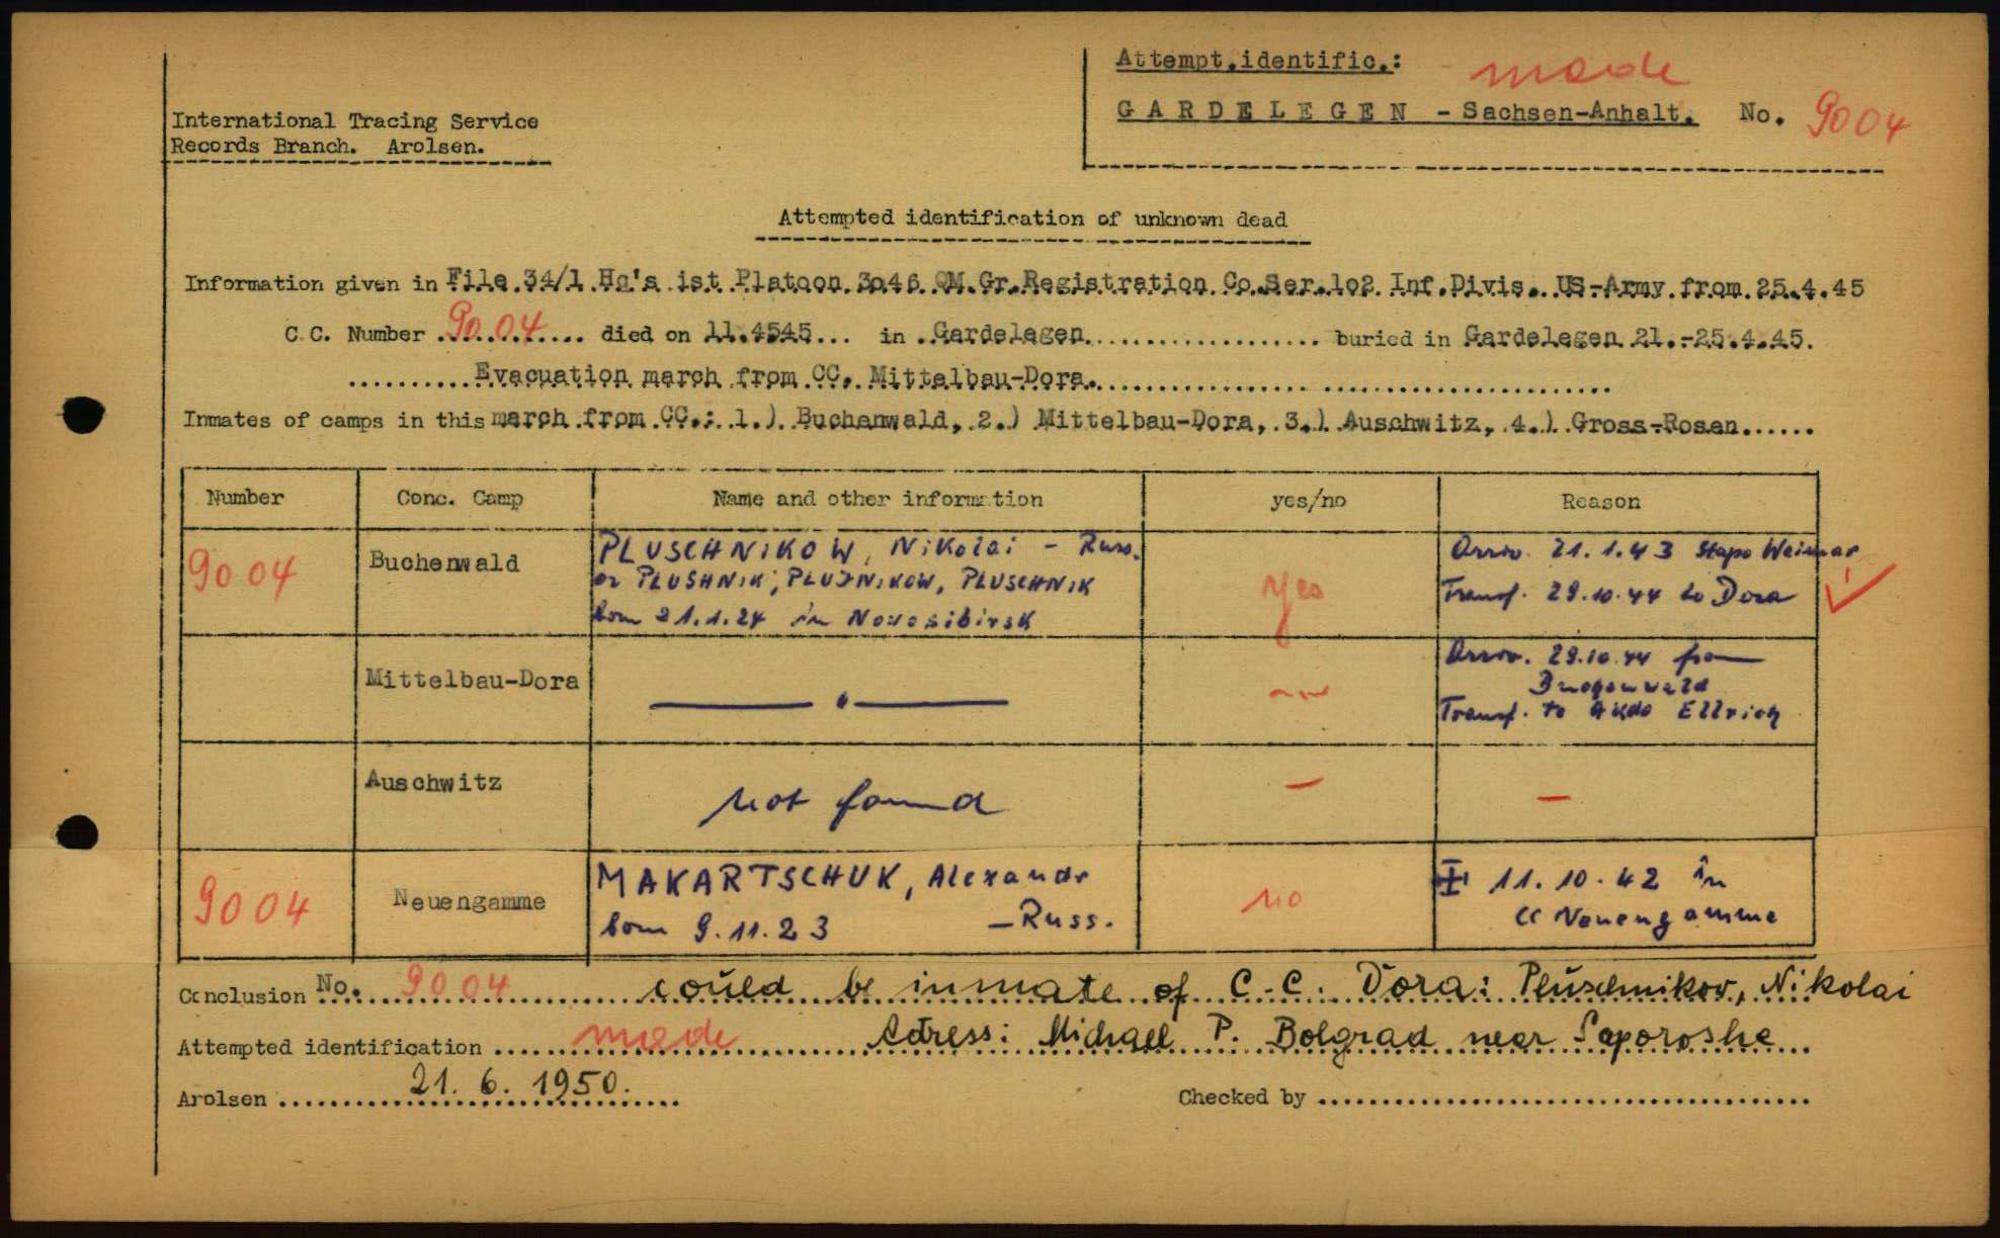 Attempt.identific.: made
GARDELEGEN - Sachsen-Anhalt. No. 9004
International Tracing Service
Records Branch. Arolsen.
Attempted identification of unknown dead
Information given in File 34/1 Hq's 1st Platoon 3046 QM.Gr.Registration Co.Ser.1o2 Inf.Divis. US-Army from 25.4.45
C.C. Number 9004 died on 11.4545 in Gardelegen buried in Gardelegen 21.-25.4.45.
Evacuation march from CC. Mittelbau-Dora.
Inmates of camps in this march from CC.: 1.) Buchenwald, 2.) Mittelbau-Dora, 3.) Auschwitz, 4.) Gross-Rosen
Number Conc. Camp Name and other information yes/no Reason
9004 Buchenwald PLUSCHNIKOW, Nikolai - Russ. yes Arriv. 21.1.43 Stapo Weimar
or PLUSHNIK, PLUSNIKOW, PLUSCHNIK Transf. 29.10.44 to Dora
born 21.1.24 in Novosibirsk
Mittelbau-Dora Arriv. 29.10.44 from
Buchenwald
Transf. to AKdo Ellrich
Auschwitz not found - -
9004 Neuengamme MAKARTSCHUK, Alexandr no 11.10.42 in
born 9.11.23 - Russ. CC Neuengamme
Conclusion No. 9004 could be inmate of C.C. Dora: Pluschnikov, Nikolai
Attempted identification made Adress: Michael P. Bolgrad near Saporoshe
Arolsen 21.6.1950. Checked by